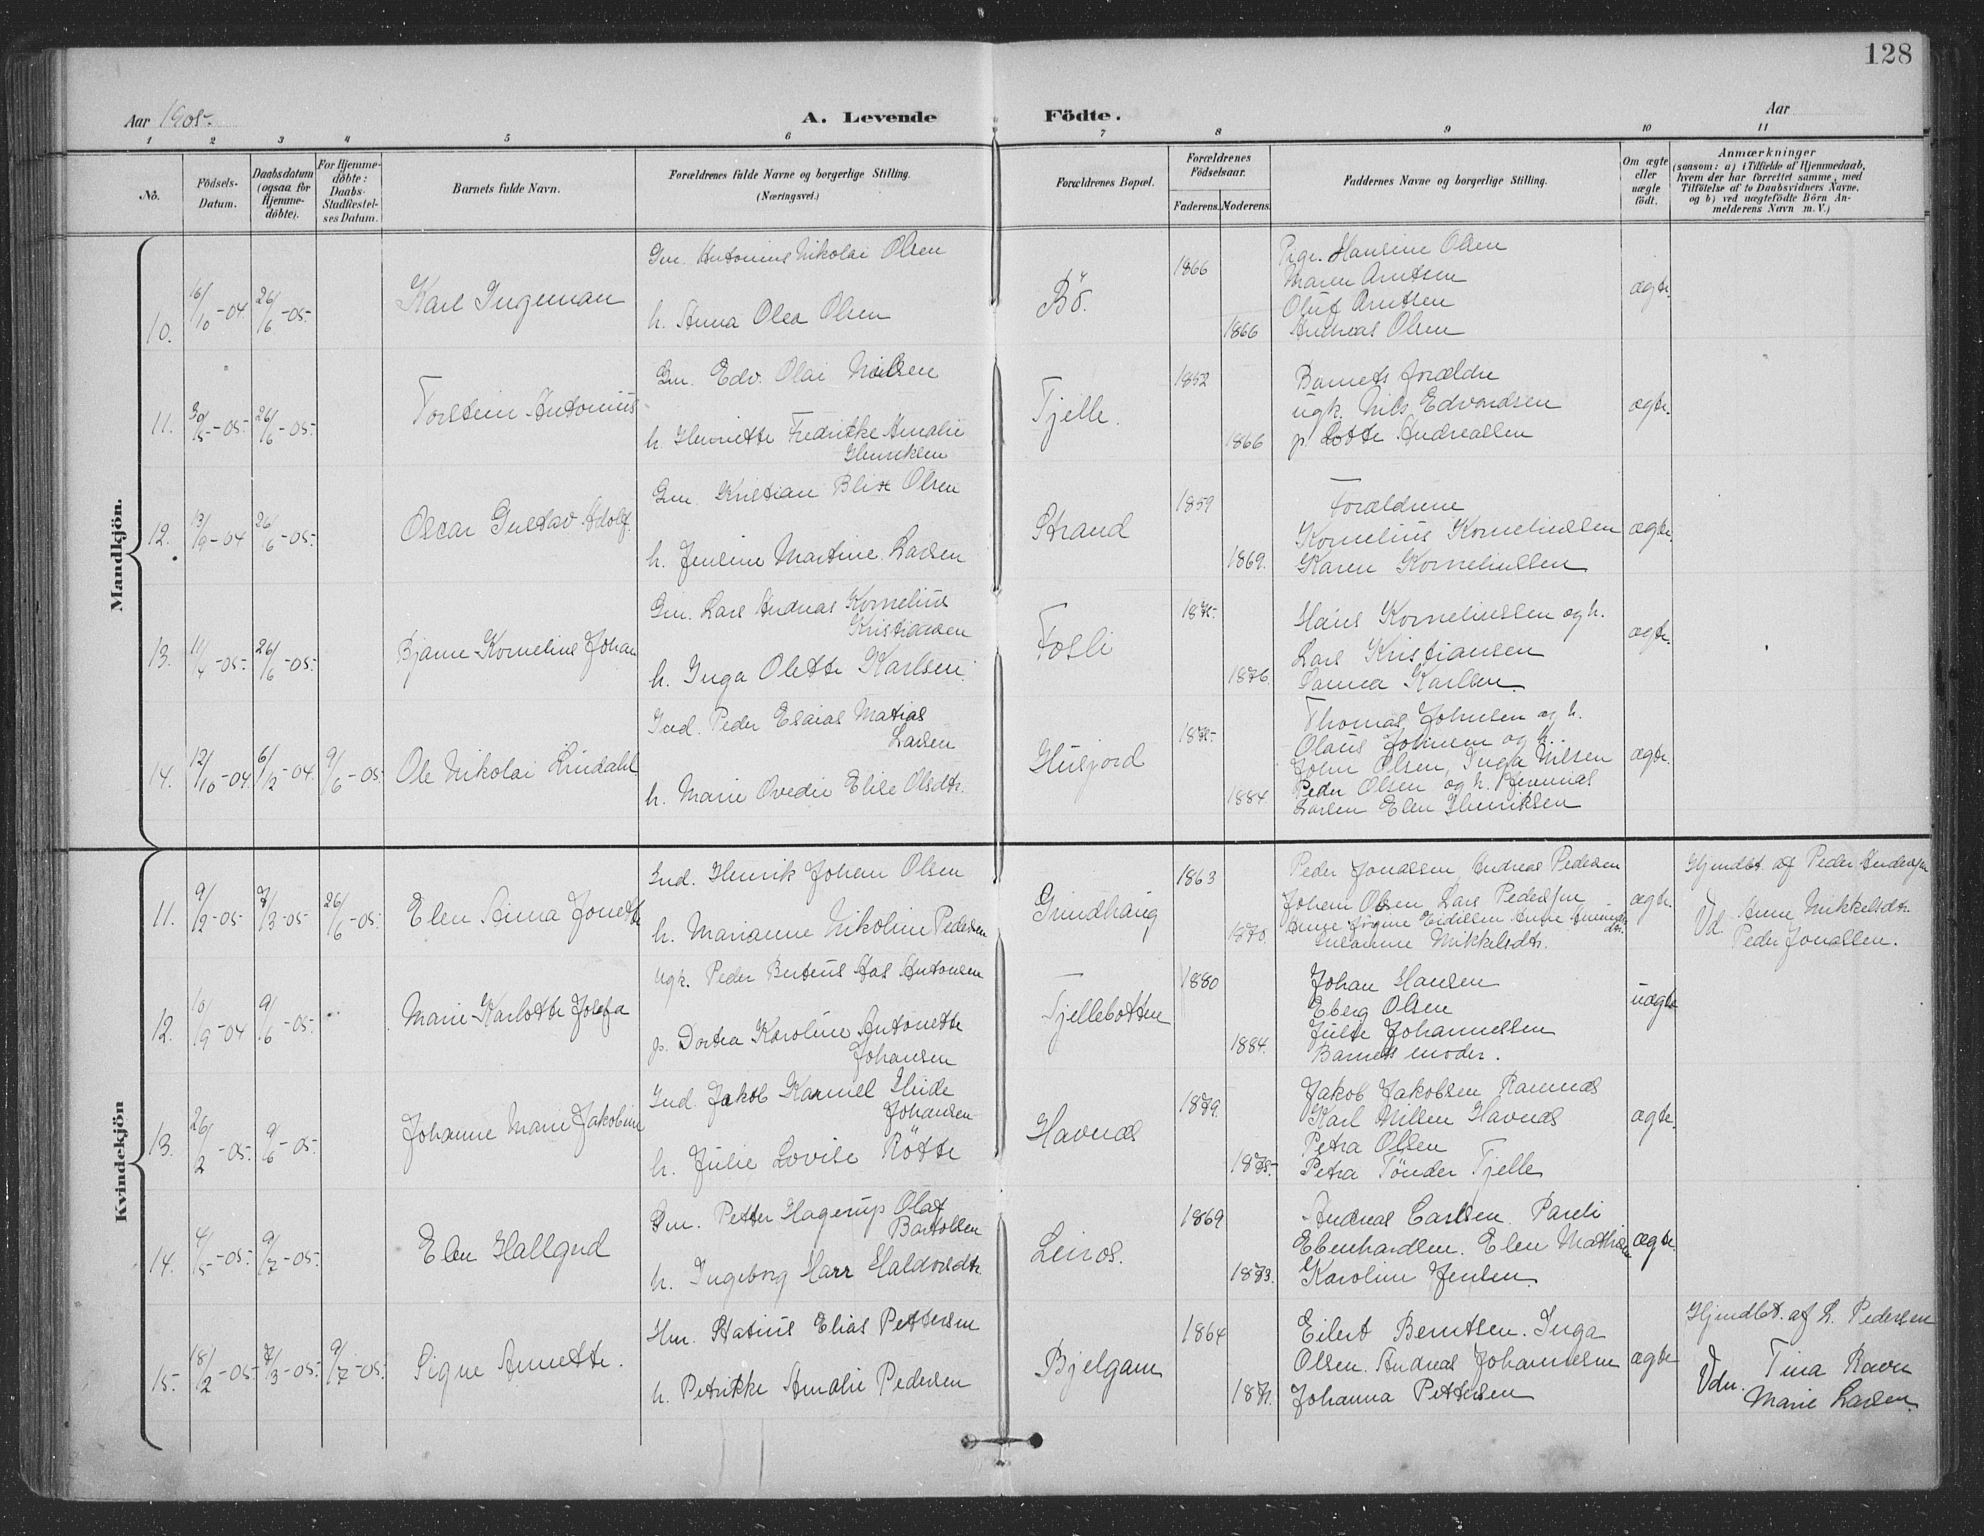 128
Aar 1905.
A. Levende Födte.
Aar
1 2 3 4 5 6 7 8 9 10 11
No.
Födsels-Datum.
Daabsdatum (ogsaa for Hjemme-döbte).
For Hjemme-döbte: Daabs-Stadfæstelses Datum.
Barnets fulde Navn.
Forældrenes fulde Navne og borgerlige Stilling.
(Næringsvei.)
Forældrenes Bopæl.
Forældrenes Födselsaar.
Faderens. Moderens.
Faddernes Navne og borgerlige Stilling.
Om ægte eller uægte födt.
Anmærkninger
(saasom: a) i Tilfælde af Hjemmedaab, hvem der har forrettet samme, med Tilföielse af to Daabsvidners Navne, og b) ved uægtefödte Börn Anmelderens Navn m. V.)
Mandkjön.
10. 16/10-04 26/6-05. Karl Ingeman
Gm. Antonius Nikolai Olsen
h. Anna Olea Olsen
Bö. 1866 1866
Pige. Hansine Olsen
Maren Arntsen
Oluf Arntsen
Andreas Olsen
ægte.
11. 30/5-05. 26/6-05. Torstein Antonius
Gm. Edv. Olai Nilsen
h. Henriette Fredrikke Amalie
Henriksen
Tjelle. 1852 1866
Barnets forældre
ugk. Nils Edvardsen
p. Lotte Andreassen
ægte.
12. 13/9-04 26/6-05. Oscar Gustav Adolf
Gm. Kristian Blix Olsen
h. Jensine Martine Larsen
Strand 1859 1869.
Forældrene
Kornelius Korneliussen
Karen Korneliussen
ægte.
13. 11/4-05. 26/6-05. Bjarne Kornelius Johan
Gm. Lars Andreas Kornelius
Kristiansen
h. Inga Olette Karlsen.
Fosli 1875. 1876.
Hans Korneliussen og h.
Lars Kristiansen
Karlsen.
ægte.
14. 12/10-04 6/12-04. 9/6-05. Ole Nikolai Lindahl
Ind. Peder Esaias Matias
Larsen
h. Marie Ovedie Elise Olsdtr.
Husjord 1875. 1884.
Thomas Johnsen og h.
Olaus Johnsen og h.
John Olsen, Inga Nilsen
Peder Olsen og h. Jeremias
Larsen Elen Henriksen
ægte.
Kvindekjön
11. 9/12-05 7/3-05 26/6-05. Elen Anna Jonette
Ind. Henrik Johan Olsen
h. Marianne Nikoline Pedersen
Grindhaug 1863 1870.
Peder Jonassen, Andreas Pedersen
Johan Olsen Lars Pedersen
Anne Jörgine Eidissen Anne
Susanne Mikkelsdtr.
ægte.
Hjmdbt. af Peder Andersen
Vd. Anne Mikkelsdtr.
Peder Jonassen.
12. 10/9-04 9/6-05. Marie Karlotte Josefa
ugk. Peder Berteus Aas Antonsen
p. Dortea Karoline Antonette
Johansen
Tjellebotten 1880 1884.
Johan Hansen
Eberg Olsen
Julie Johannessen
Barnets moder.
uægte
13. 26/2-05. 9/6-05. Johanne Marie Jakobine
Ind. Jakob Karmel Hude
Johansen
h. Julie Lovise Rötte
Havnæs 1879. 1875.
Jakob Jakobsen Ramnæs
Karl Nilsen Havnæs
Petra Olsen
Petra Tönder Tjelle
ægte.
14. 4/5-05. 9/7-05. Elen Hallgud
Gm. Petter Hagerup Olaf
Bartolsen
h. Ingeborg Harr Haldorsdtr.
Leiros. 1869 1873.
Andreas Carlsen. Pareli
Ebenhardsen. Elen Mathisen
Karoline Jensen.
ægte.
15. 18/2-05. 7/3-05. 9/7-05. Signe Annette.
Hm. Statius Elias Pettersen
h. Petrikke Amalie Pedersen
Bjelgam 1864 1871.
Eilert Berntsen. Inga
Olsen. Andreas Johannesen
Johanna Pettersen
ægte
Hjmdbt. af L. Pedersen
Vdn. Tina Ravn
Marie Larsen.